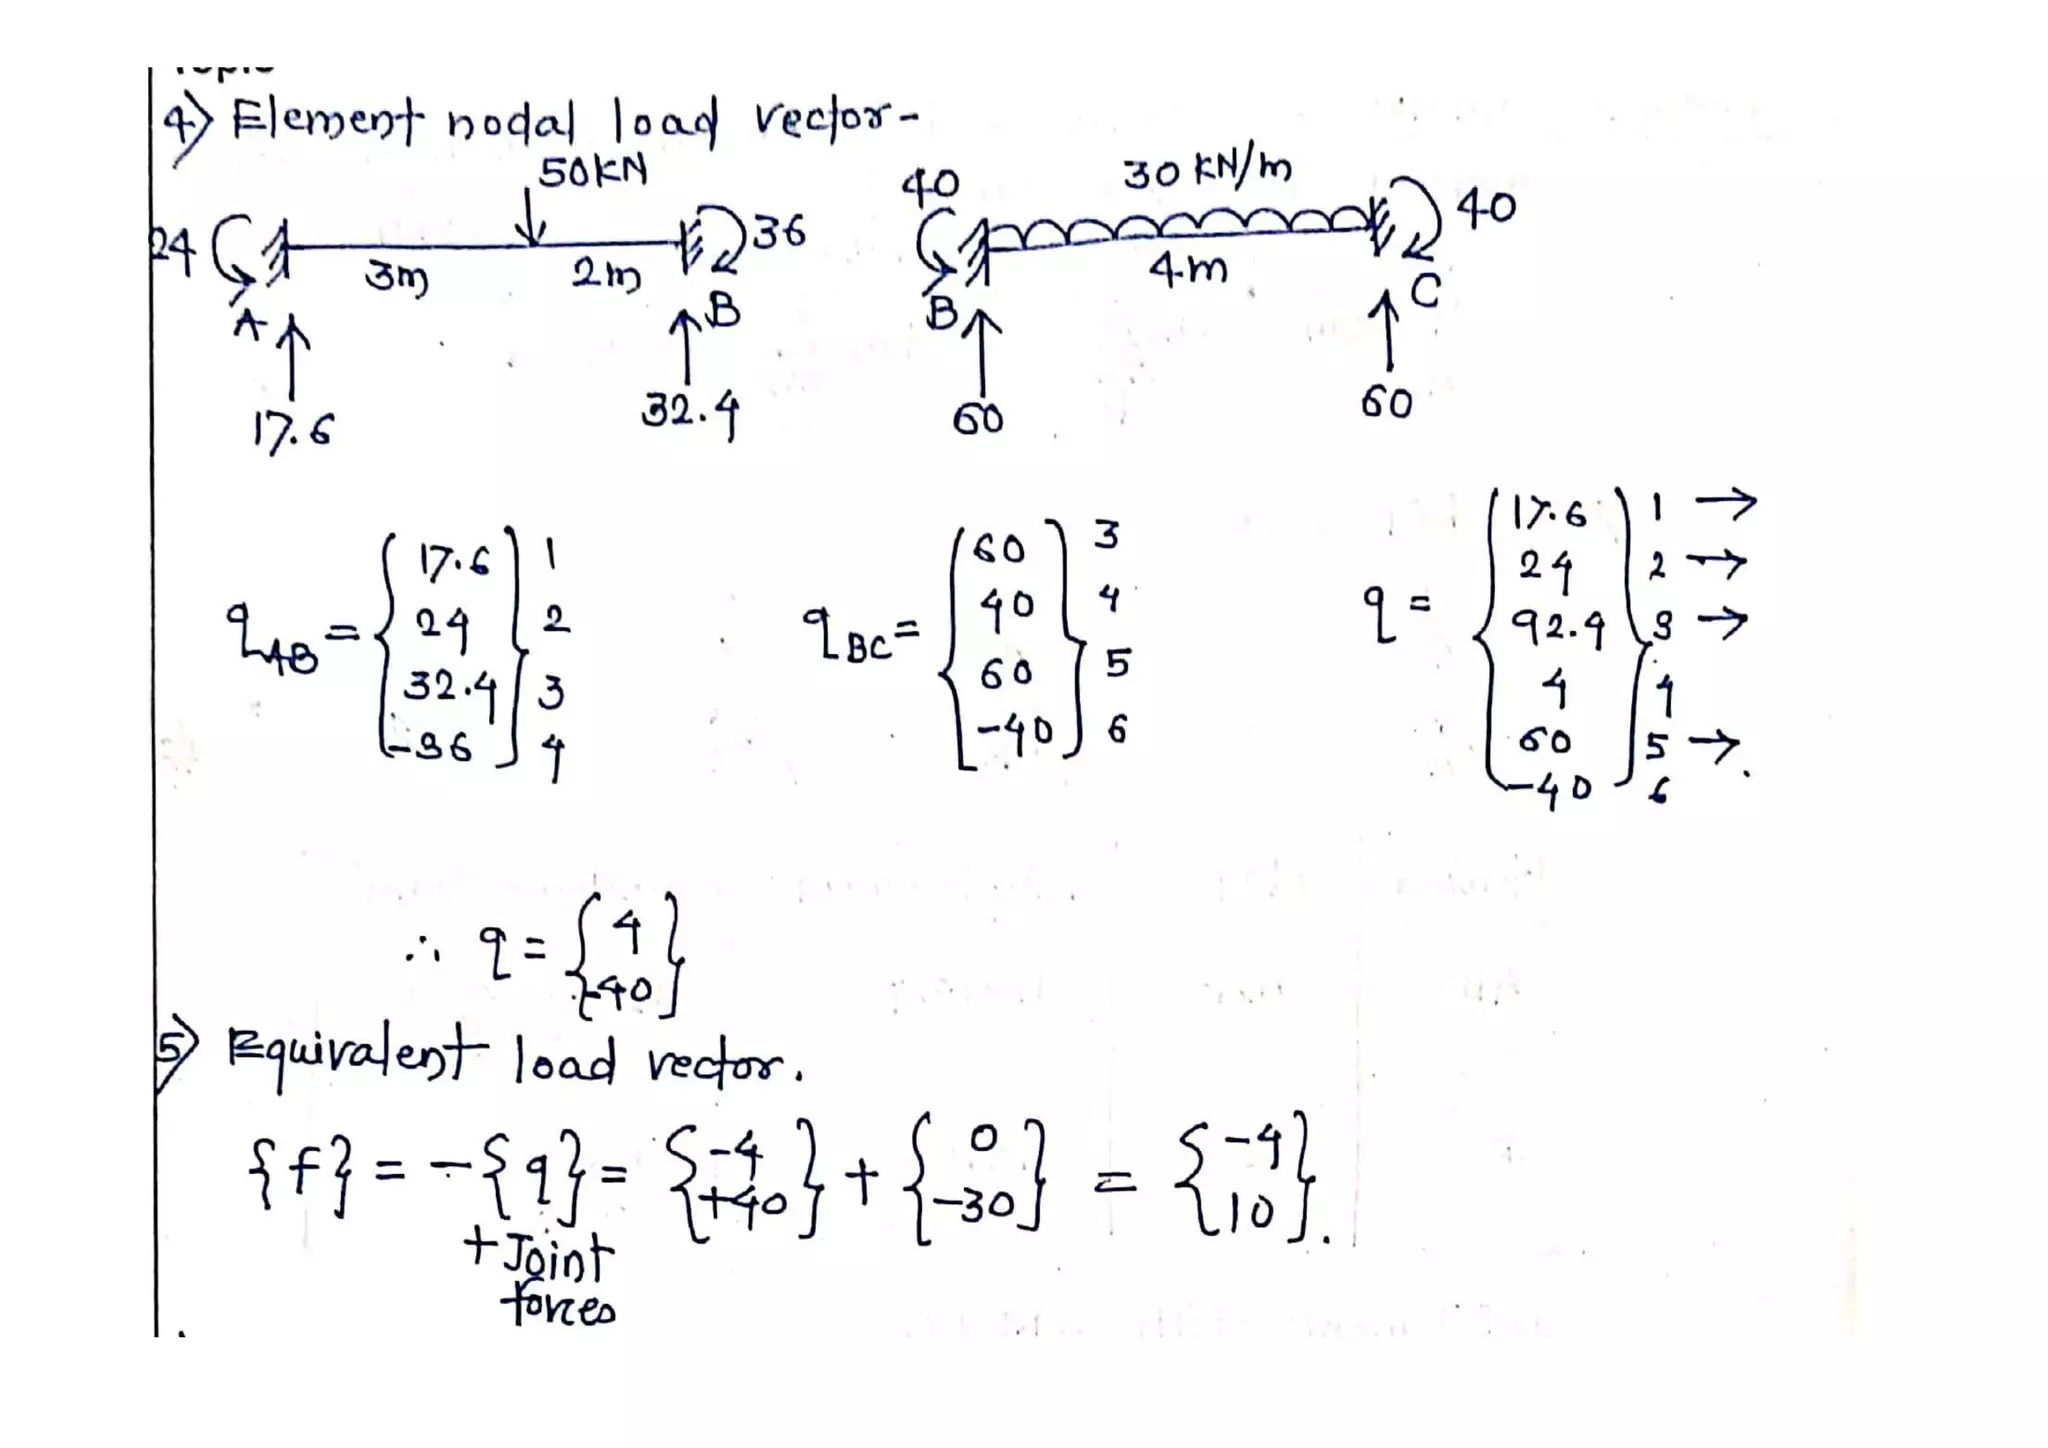 4) Element nodal load vector-
50KN
24 36
3m 2m
A B
17.6 32.4
40 30 KN/m 40
4m
B C
60 60
qAB = { 17.6 } 1
24 2
32.4 3
-36 4
qBC = { 60 } 3
40 4
60 5
-40 6
q = { 17.6 } 1 →
24 2 →
92.4 3 →
4 4
60 5 →.
-40 6
∴ q = { 4
-40 }
5) Equivalent load vector.
{f} = -{q} = { -4 +40 } + { 0 -30 } = { -4 10 }.
+ Joint
forces